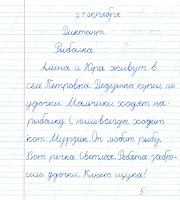 27 октября.
Диктант.
Рыбалка.
Алёша и Юра живут в
селе Петровка. Дедушка купил им
удочки. Мальчики ходят на
рыбалку. С ними всегда ходит
кот Мурзик. Он любит рыбу.
Вот речка Светлая. Ребята забро-
сили удочки. Клюёт щука!
5